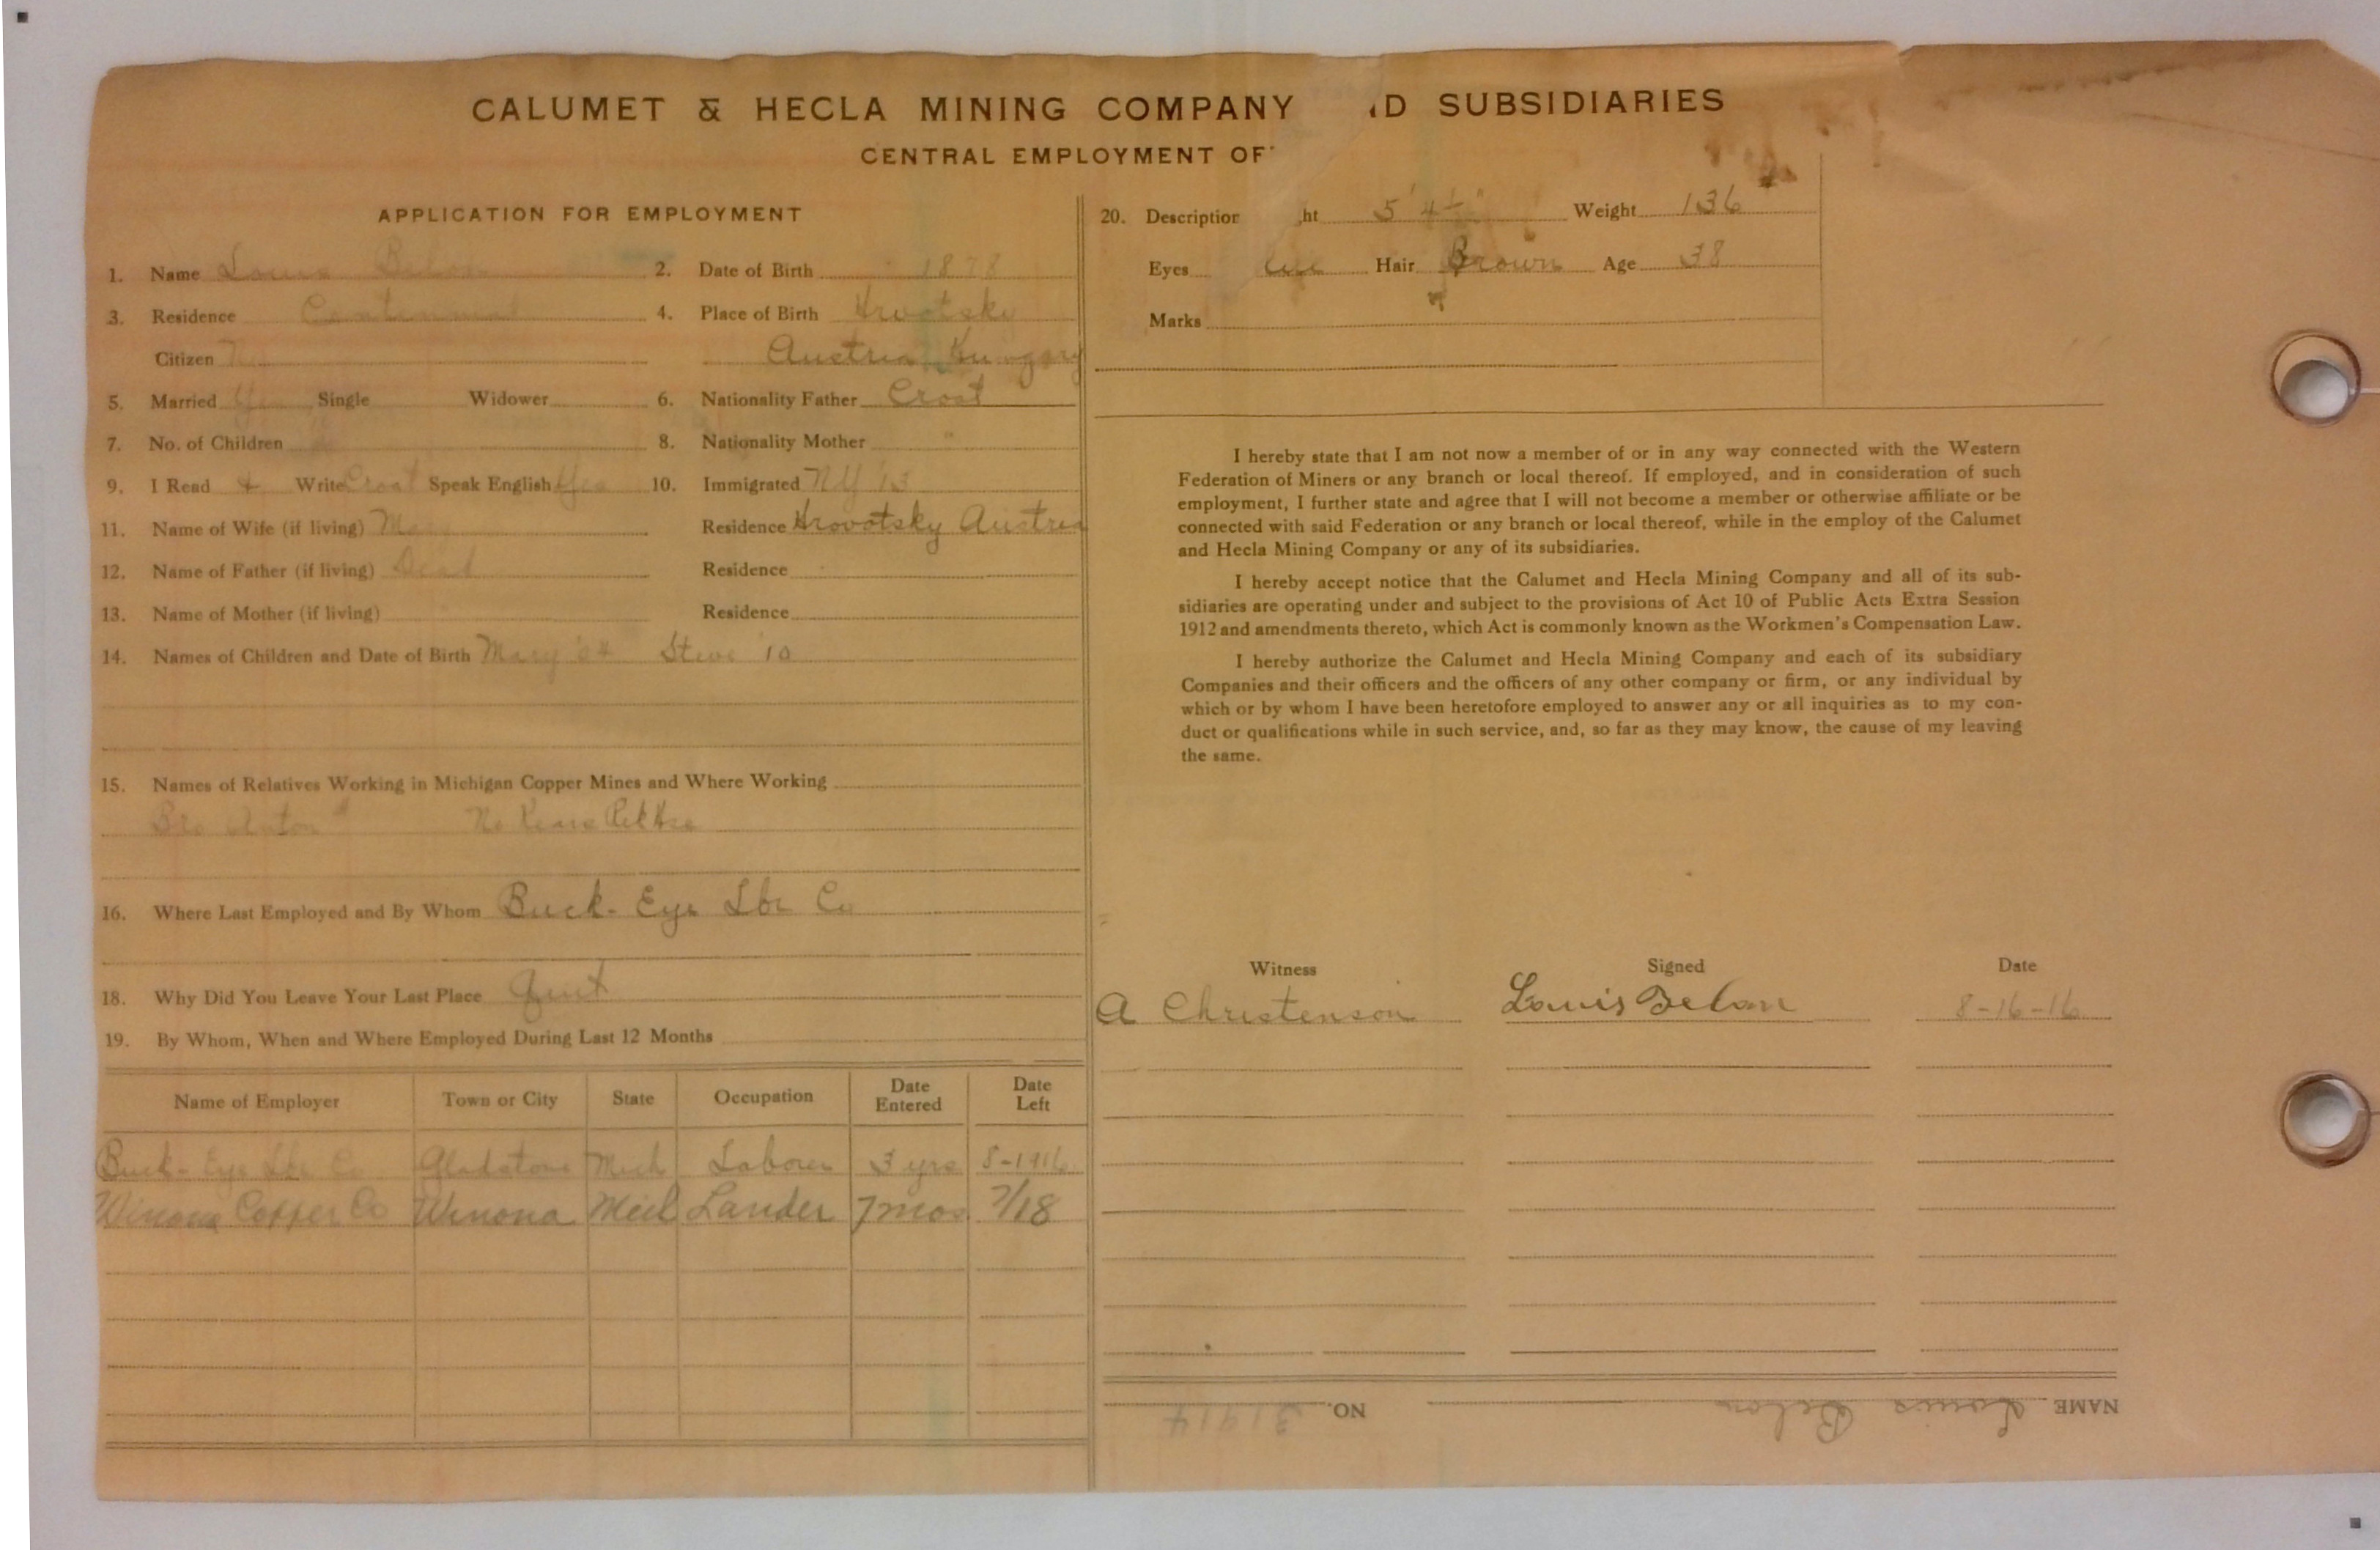 CALUMET & HECLA MINING COMPANY D SUBSIDIARIES
CENTRAL EMPLOYMENT OF
APPLICATION FOR EMPLOYMENT
1. Name Louis Belan 2. Date of Birth 1878
3. Residence 4. Place of Birth Hrvotsky
Citizen Austria Hungary
5. Married Yes Single Widower 6. Nationality Father Croat
7. No. of Children 8. Nationality Mother "
9. I Read & Write Croat Speak English Yes 10. Immigrated NY '13
11. Name of Wife (if living) Residence Hrovotsky Austria
12. Name of Father (if living) Dead Residence
13. Name of Mother (if living) Residence
14. Names of Children and Date of Birth Mary '04 Steve '10
15. Names of Relatives Working in Michigan Copper Mines and Where Working
Bro Anton
16. Where Last Employed and By Whom Buck-Eye Lbr Co
18. Why Did You Leave Your Last Place Quit
19. By Whom, When and Where Employed During Last 12 Months
Name of Employer Town or City State Occupation Date Entered Date Left
Buck-Eye Lbr Co Gladstone Mich Laborer 3 yrs 8-1916
Winona Copper Co Winona Mich Lander 7 mos 7/18
20. Description ht 5' 4½" Weight 136
Eyes Hair Brown Age 38
Marks
I hereby state that I am not now a member of or in any way connected with the Western
Federation of Miners or any branch or local thereof. If employed, and in consideration of such
employment, I further state and agree that I will not become a member or otherwise affiliate or be
connected with said Federation or any branch or local thereof, while in the employ of the Calumet
and Hecla Mining Company or any of its subsidiaries.
I hereby accept notice that the Calumet and Hecla Mining Company and all of its sub-
sidiaries are operating under and subject to the provisions of Act 10 of Public Acts Extra Session
1912 and amendments thereto, which Act is commonly known as the Workmen's Compensation Law.
I hereby authorize the Calumet and Hecla Mining Company and each of its subsidiary
Companies and their officers and the officers of any other company or firm, or any individual by
which or by whom I have been heretofore employed to answer any or all inquiries as to my con-
duct or qualifications while in such service, and, so far as they may know, the cause of my leaving
the same.
Witness Signed Date
A Christenson Louis Belan 8-16-16
NAME Louis Belan NO. 31914